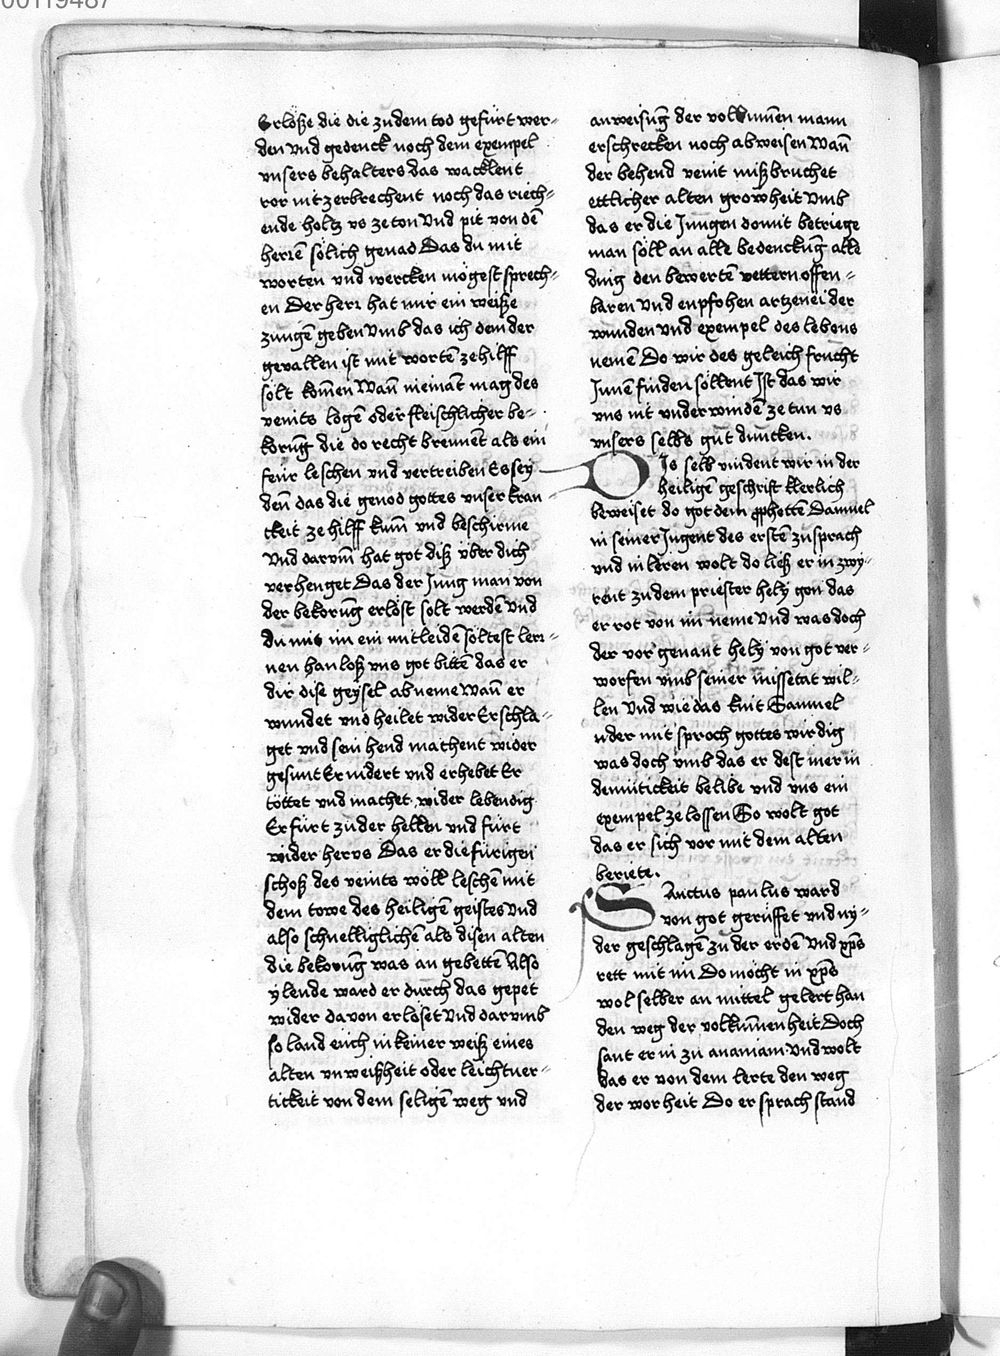 00119487
Erlöse die die zudem tod gefürt wer-
den vnd gedenck noch dem exempel
vnsers behalters das wacklent
ror nit zerbrechent noch das riech-
ende holtz vs ze ton Vnd pit von dē
herrē sölich genad Das du mit
worten vnd wercken mögest sprech-
en Der herr hat mir ein weiße
zungē geben Vmb das ich dem der
gevallen ist mit wortē ze hilff
sölt komēn Wañ niemāt mag des
veints logē oder fleischlicher be-
korūg die do recht brennēt als ein
feür leschen vnd vertreiben Es sey
deñ das die genod gottes vnser kran
ckeit ze hilff kum̄ vnd beschirme
Vnd darvm̄ hat got diß über dich
verhenget Das der Jung man von
der bekorūg erlöst solt werdē Vnd
du mit im ein mitleidē söltest lern-
nen han loß vns got bittē das er
dir dise geysel ab neme Wañ er
wundet vnd heilet wider Er schla-
get vnd sein hend machent wider
gesunt Er nidert vnd erhebet Er
töttet vnd machet wider lebendig
Er fürt zu der hellen vnd fürt
wider hervs Das er die fürigen
schoß des veints wöll leschē mit
dem towe des heiligē geistes Vnd
also schnelliglichē als disen alten
die bekorūg was an gebettē Also
ylende ward er durch das gepet
wider davon erlöset Vnd darvmb
so land eüch in keiner weiß eines
alten vnweißheit oder leichtuer-
tickeit von dem seligē weg vnd
anweisūg der volkumēn mann
erschrecken noch abweisen Wañ
der behend veint mißbruchet
ettlicher alten growheit Vmb
das er die Jungen domit betriege
man söll an alle bedenckūg alle
ding den bewertē vettern offen-
baren Vnd enpfohen artzenei der
wunden vnd exempel des lebens
nemē Do wir des geleich frucht
Jnnē finden söllent Jst das wir
vns nit vnderwindē ze tun vs
vnsers selbs gut duncken.
Dis selb vindent wir in der
heiligē geschrift klerlich
beweiset do got dem ꝓphettē Samuel
in seiner Jugent des erstē zu sprach
vnd in leren wolt do ließ er in zwy-
rent zu dem priester hely gon das
er rot von im neme Vnd was doch
der vor genant hely von got ver-
worfen vmb seiner missetat wil-
len Vnd wie das kint Samuel
wider mit sproch gottes wirdig
was doch vmb das er dest mer in
demütickeit belibe vnd vns ein
exempel ze lossen So wolt got
das er sich vor mit dem alten
beriete.
Sanctus paulus ward
von got gerüffet vnd ny-
der geschlagē zu der erdē Vnd xp̄s
rett mit im Do möcht in xp̄s
wol selber an mittel gelert han
den weg der volkum̄enheit Doch
sant er in zu ananiam Vnd wolt
das er von dem lerte den weg
der worheit Do er sprach stand